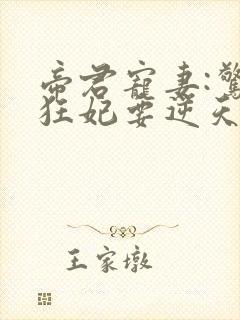 帝君寵妻:驚
狂妃要逆天
王家墩